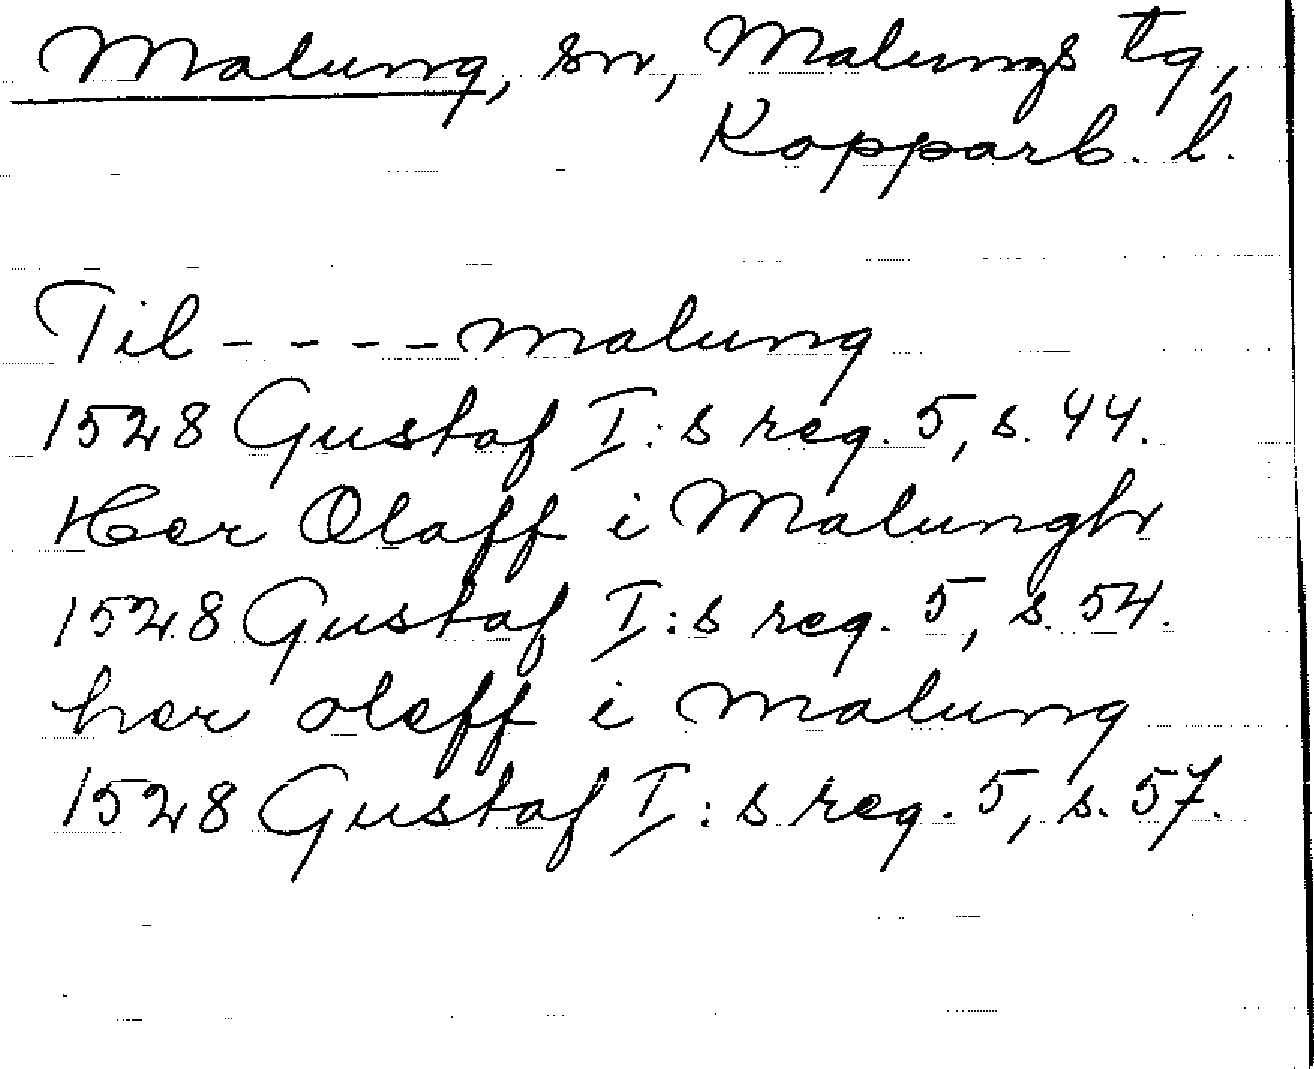 Malung, sn, Malungs tg,
Kopparb. l.
Til - - - - malung
1528 Gustaf I:s reg. 5, s. 44.
Her Olaff i Malungh
1528 Gustaf I:s reg. 5, s. 54.
her oleff i malung
1528 Gustaf I:s reg. 5, s. 57.